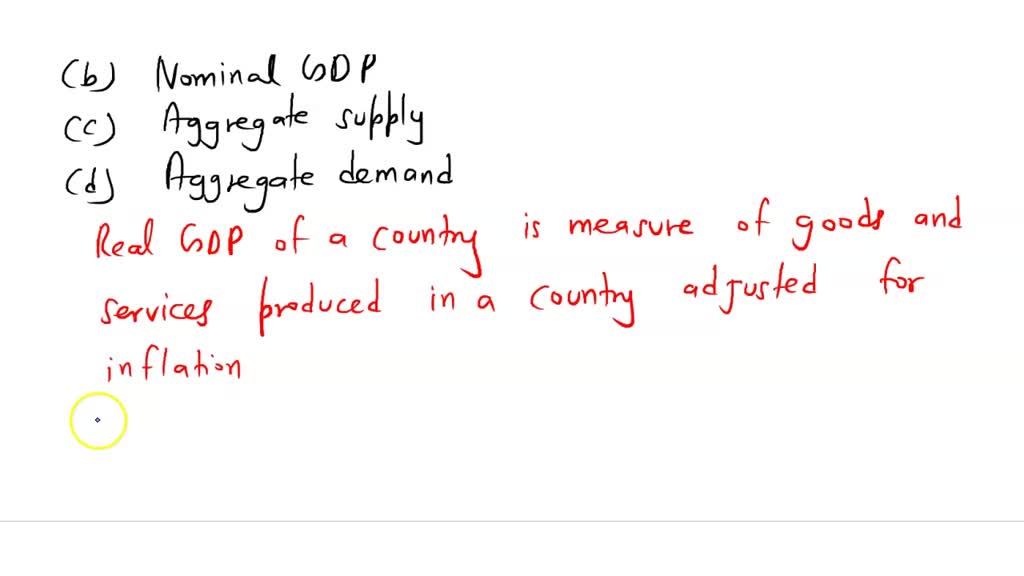 (b) Nominal GDP
(c) Aggregate supply
(d) Aggregate demand
Real GDP of a country is measure of goods and
services produced in a country adjusted for
inflation